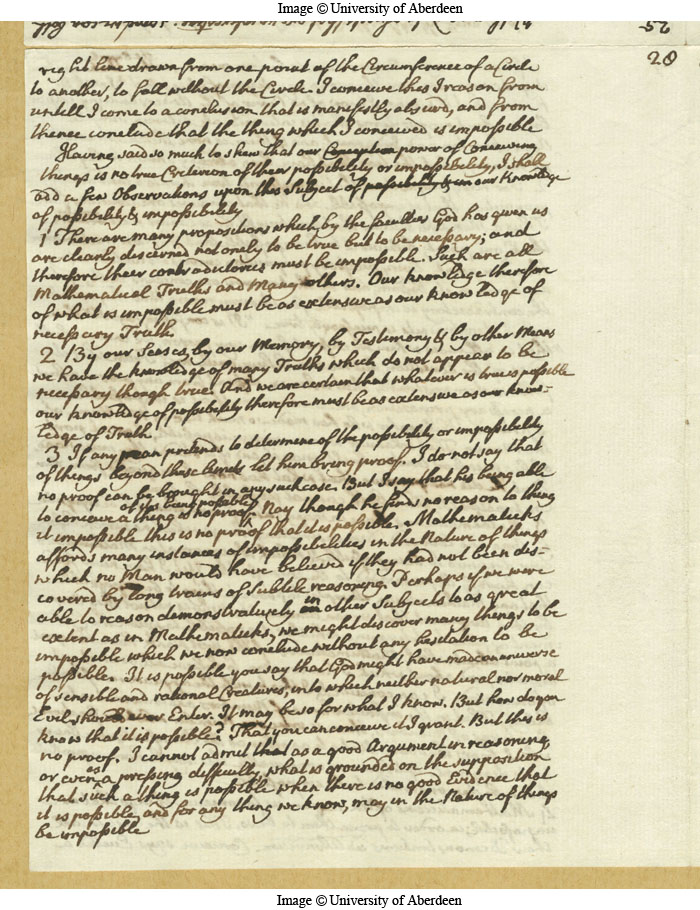 Image © University of Aberdeen
25
20
right line drawn from one point of the Circumference of a Circle
to another, to fall without the Circle. I conceive this I reason from
untill I come to a conclusion that is manifestly absurd, and from
thence conclude that the thing which I conceived is impossible
Having said so much to shew that our Conception power of Conceiving
things is no true Criterion of their possibility or impossibility, I shall
add a few Observations upon this Subject of possibility & im our Knowledge
of possibility & impossibility
1 There are many propositions which by the faculties God has given us
are clearly discerned not onely to be true but to be necessary; and
therefore their contradictories must be impossible. Such are all
Mathematical Truths and Many others. Our knowledge therefore
of what is impossible must be as extensive as our knowledge of
necessary Truth
2 By our Senses, by our Memory, by Testimony & by other Means
we have the knowledge of many Truths which do not appear to be
necessary though true. And we are certain that whatever is true is possible
our knowledge of possibility therefore must be as extensive as our know-
ledge of Truth
3 If any man pretends to determine of the possibility or impossibility
of things beyond these limits let him bring proof. I do not say that
no proof can be brought in any such case. But I say that his being able
of its being possible
to conceive a thing is no proof. Nay though he finds no reason to think
it impossible this is no proof that it is possible. Mathematicks
affords many instances of impossibilities in the Nature of things
which no Man would have believed if they had not been dis-
covered by long trains of Subtile reasoning. Perhaps if we were
able to reason demonstratively in other Subjects to as great
extent as in Mathematicks, we might discover many things to be
impossible which we now conclude without any hesitation to be
possible. It is possible you say that God might have made an universe
of sensible and rational Creatures, into which neither natural nor moral
Evil should ever Enter. It may be so for what I know. But how do you
know that it is possible? That you can conceive it I grant. But this is
no proof. I cannot admit that as a good Argument in reasoning,
or even as a pressing difficulty, what is grounded on the supposition
that such a thing is possible when there is no good Evidence that
it is possible, and for any thing we know, may in the Nature of things
be impossible
Image © University of Aberdeen